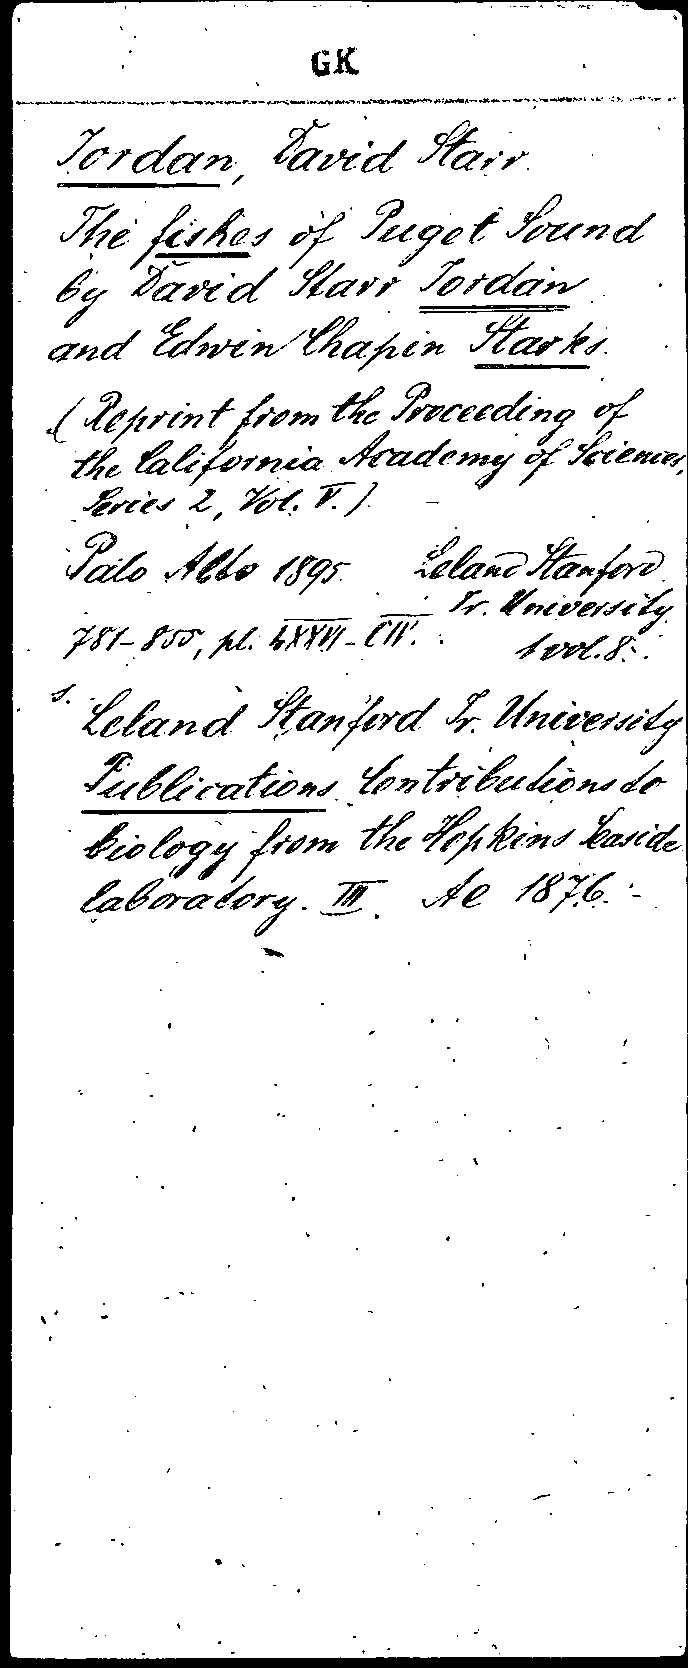 GK
Jordan, David Starr.
The fishes of Puget Sound
by David Starr Jordan
and Edwin Chapin Starks.
(Reprint from the Proceeding of
the California Academy of Sciences,
Series 2, Vol. V.)
Palo Alto 1895. Leland Stanford
Jr. University
781-855, pl. LXXVI-CIV. 1 vol. 8:
s. Leland Stanford Jr. University
Publications. Contributions to
biology from the Hopkins Seaside
laboratory. III. Ae 1876.-